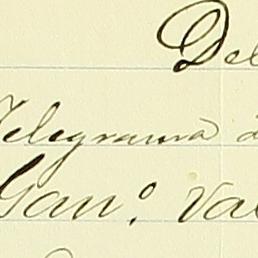 Del
Telegrama d
Gan.º Val